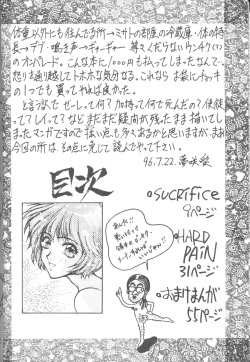 体重以外にも住んでる所→ミサトの部屋の冷蔵庫・体の特
長→デブ・鳴き声→ギャーギャー 等々くだらないウンチク(?)
のオンパレード。こんな本に1,000円も払ってしまったなんて…
怒りを通り越してトホホな気分なる。これなら お菜にチョッキ
の1つでも 買ってやれば良かった。
と言う訳で ゼーレって何？加持って何で死んだの？使徒
って？レイって？など まだまだ疑問が残ったまま描いてし
まったマンガですので 甘い点も多々あるかと思いますが、まぁ
今回の所は、その点に免じて 読んでやって下さい。
96.7.22.
目次
●SUCRifice
9ページ
●HARD
PAiN
31ページ
●おまけまんが
55ページ